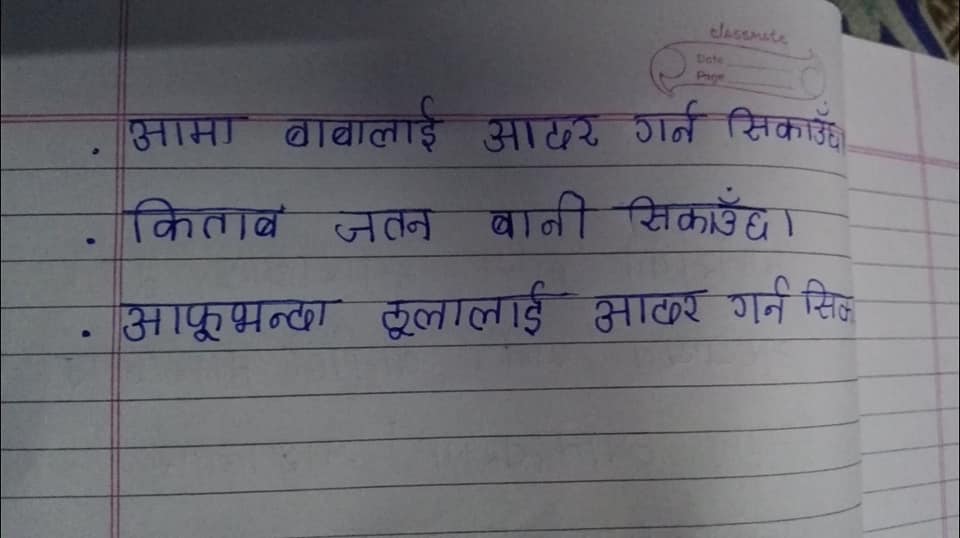 classmate
Date
Page
. आमा बाबालाई आदर गर्न सिकाउँछ
. किताब जतन बानी सिकाउँछ।
. आफूभन्दा ठूलालाई आदर गर्न सिक